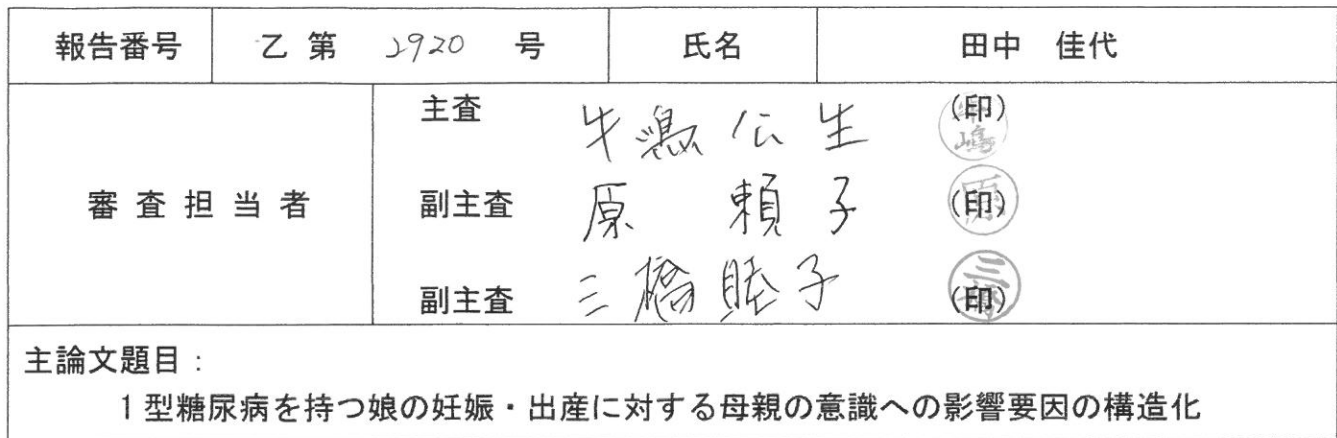 報告番号 乙 第 2920 号 氏名 田中 佳代
主査 牛嶋 公生 (印)
審査担当者 副主査 原 頼子 (印)
副主査 三橋 睦子 (印)
主論文題目：
1型糖尿病を持つ娘の妊娠・出産に対する母親の意識への影響要因の構造化